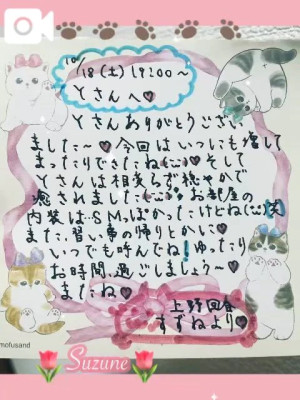 10/18(土)19:00～
Yさんへ♡
Yさんありがとうござい
ました～♡今回はいつにも増して
まったりできたね(¨)♡そして
Yさんは相変らず穏やかで
癒されました(¨)♡お部屋の
内装はSMっぽかったけどね(¨)笑
また、習い事の帰りとかに♡
いつでも呼んでね!ゆったり
お時間過ごしましょう～♡
またね♡
上野回春
すずねより♡
mofusand
Suzune